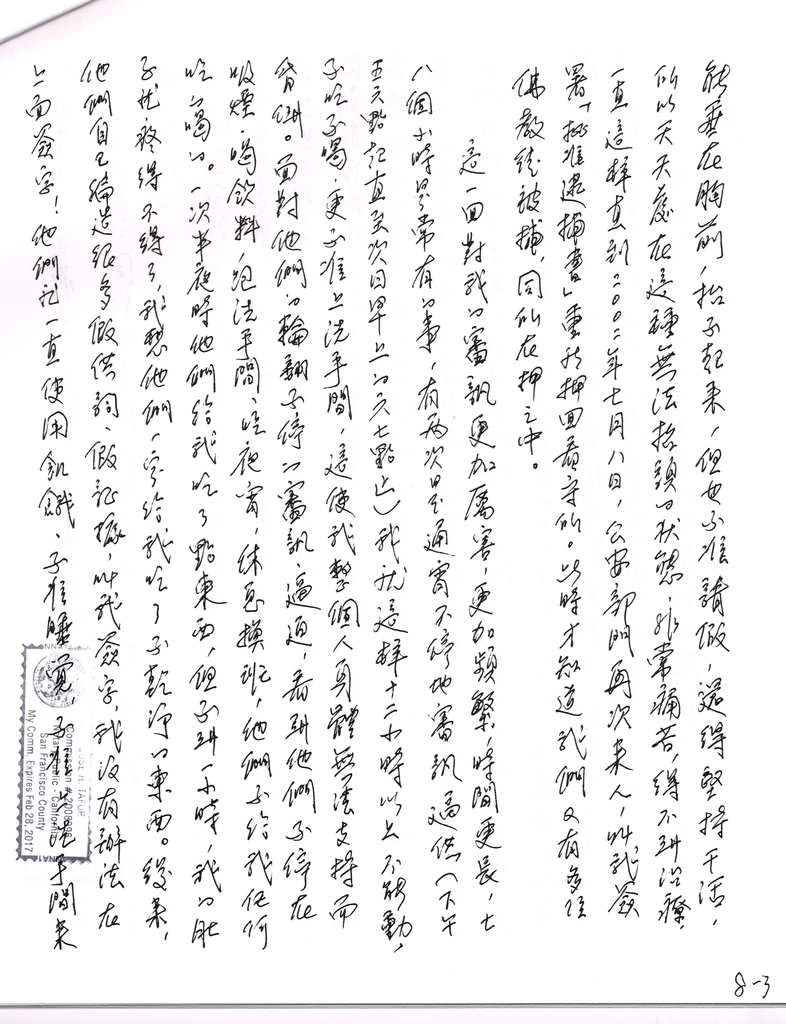 能垂在胸前，抬不起来，但也不准請假，還得堅持干活，
所以天天處在這種無法抬頭的状態，非常痛苦，得不到治療，
一直這样直到二００二年七月八日，公安部門再次来人，叫我簽
署「批准逮捕書」重新押回看守所。此時才知道我們又有多位
佛教徒被捕，同所在押之中。
這一回對我的審訊更加厲害，更加頻繁，時間更長，七
八個小時是常有的事，有两次是通宵不停地審訊逼供（下午
五六點起直至次日早上的六七點止）我就這样十二小時以上不能動，
不吃不喝，更不准上洗手間，這使我整個人身體無法支持而
昏倒。面對他們的輪翻不停的審訊、逼迫，看到他們不停在
吸煙、喝飲料、跑洗手間、吃夜宵，休息换班，他們不给我任何
吃喝的。一次半夜時他們给我吃了點東西，但不到一小時，我的肚
子就疼得不得了，我想他們一定给我吃了不乾净的東西。後来，
他們自己編造很多假供詞、假証據，叫我簽字，我沒有辦法在
上面簽字！他們就一直使用飢餓、不准睡覺，不准上洗手間来
JOSE H. TAFUR
Commission #
Notary Public - California
San Francisco County
My Comm. Expires Feb 28, 2017
8-3